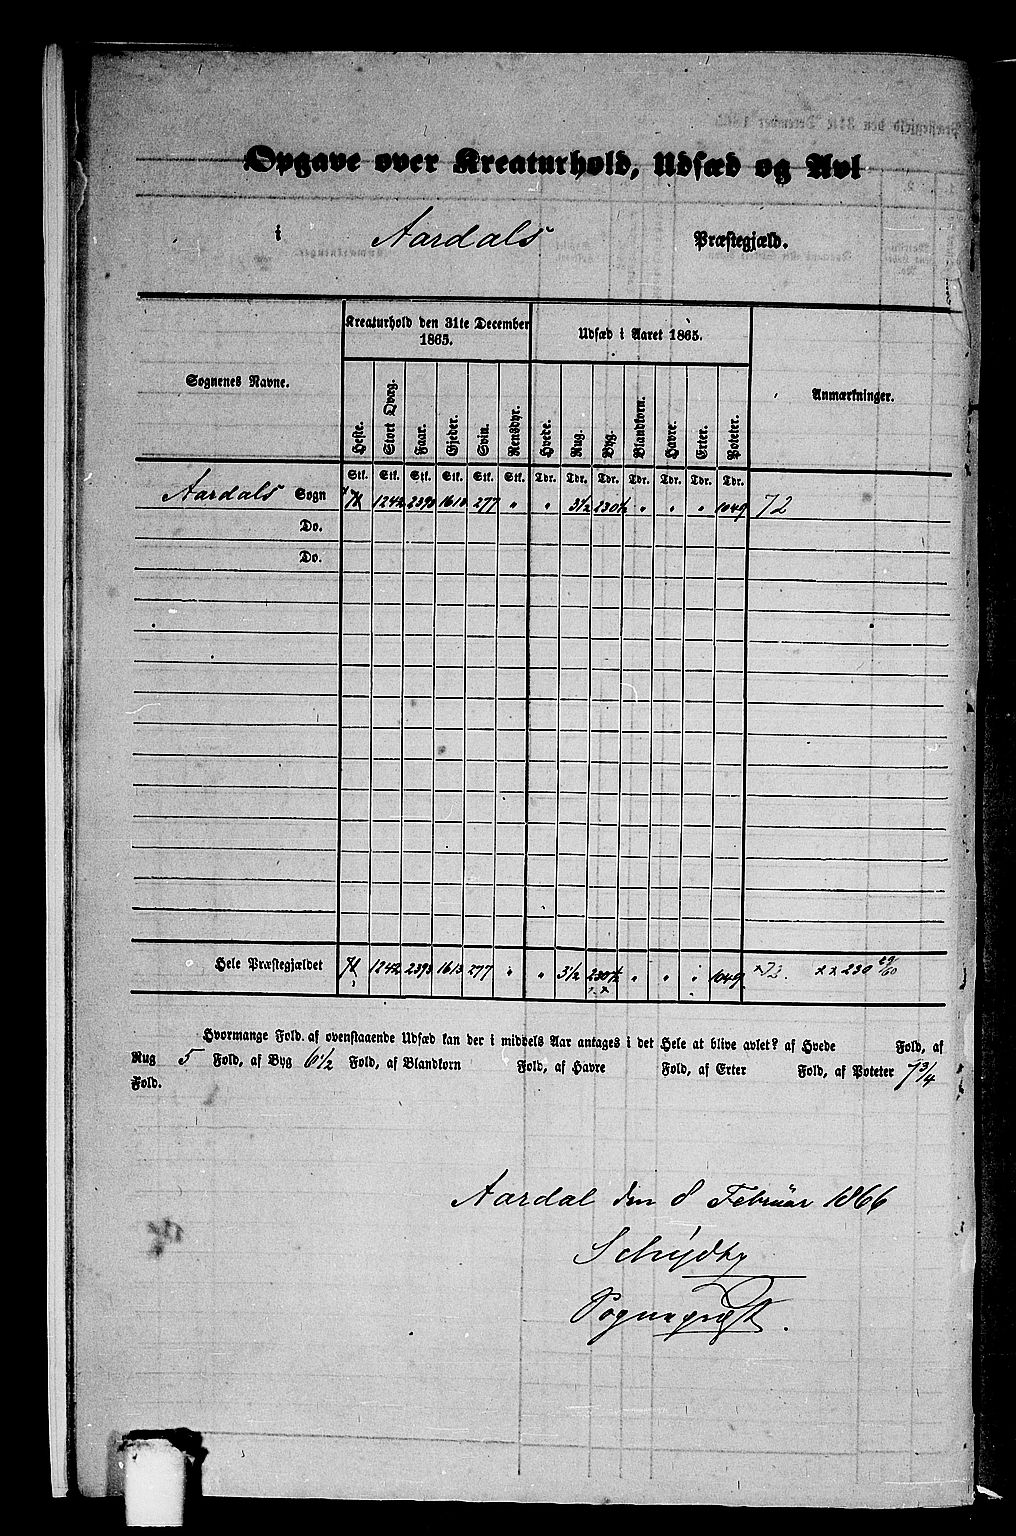 Opgave over Kreaturhold, Udsæd og Avl
i Aardals Præstegjæld.
Sognenes Navne.
Kreaturhold den 31te December 1865.
Udsæd i Aaret 1865.
Anmærkninger.
Heste. Stort Qvæg. Faar. Gjeder. Svin. Rensdyr. Hvede. Rug. Byg. Blandkorn. Havre. Erter. Poteter.
Stk. Stk. Stk. Stk. Stk. Stk. Tdr. Tdr. Tdr. Tdr. Tdr. Tdr. Tdr.
Aardals Sogn 1242 2393 1613 277 " " 3½ 230½ " " " 1049 72
Do.
Do.
Hele Præstegjældet 1242 2393 1613 277 " " 3½ 230½ " " " 1049 x72. xx 230 29/60
Hvormange Fold. af ovenstaaende Udsæd kan der i middels Aar antages i det Hele at blive avlet? af Hvede Fold, af
Rug 5 Fold, af Byg 6½ Fold, af Blandkorn Fold, af Havre Fold, af Erter Fold, af Poteter 7¾
Fold.
Aardal den 8 Februar 1866
Sognepræst.